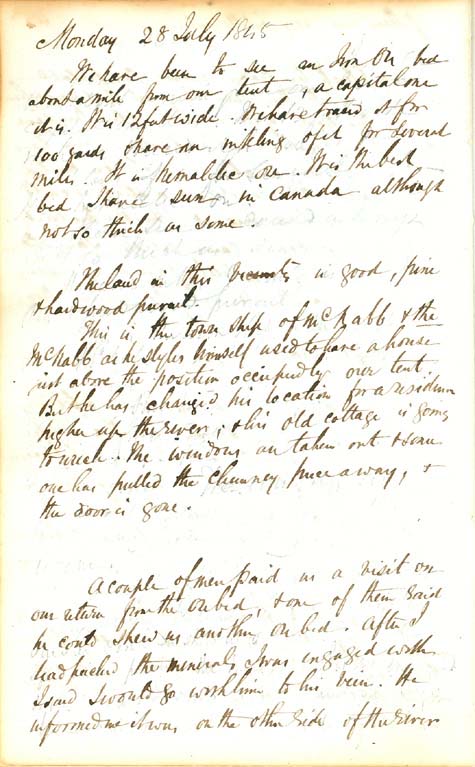 Monday 28 July 1845
We have been to see an Iron Ore bed
about a mile from our tent, a capital one
it is. It is 12 feet wide. We have traced it for
100 yards & have an inkling of it for several
miles. It is Hematitic ore. It is the best
bed I have seen in Canada although
not so thick as some.
The land in this vicinity is good, pine
& hardwood prevail.
This is the township of McNabb & the
McNabb as he styles himself used to have a house
just above the position occupied by our tent.
But he has changed his location for a residence
higher up the river, & his old cottage is going
to wreck. The windows are taken out & some
one has pulled the chimney piece away, &
the door is gone.
A couple of men paid us a visit on
our return from the Ore bed, & one of them said
he could shew us another ore bed. After I
had packed the minerals I was engaged with
I said I would go with him to his vein. He
informed me it was on the other side of the river